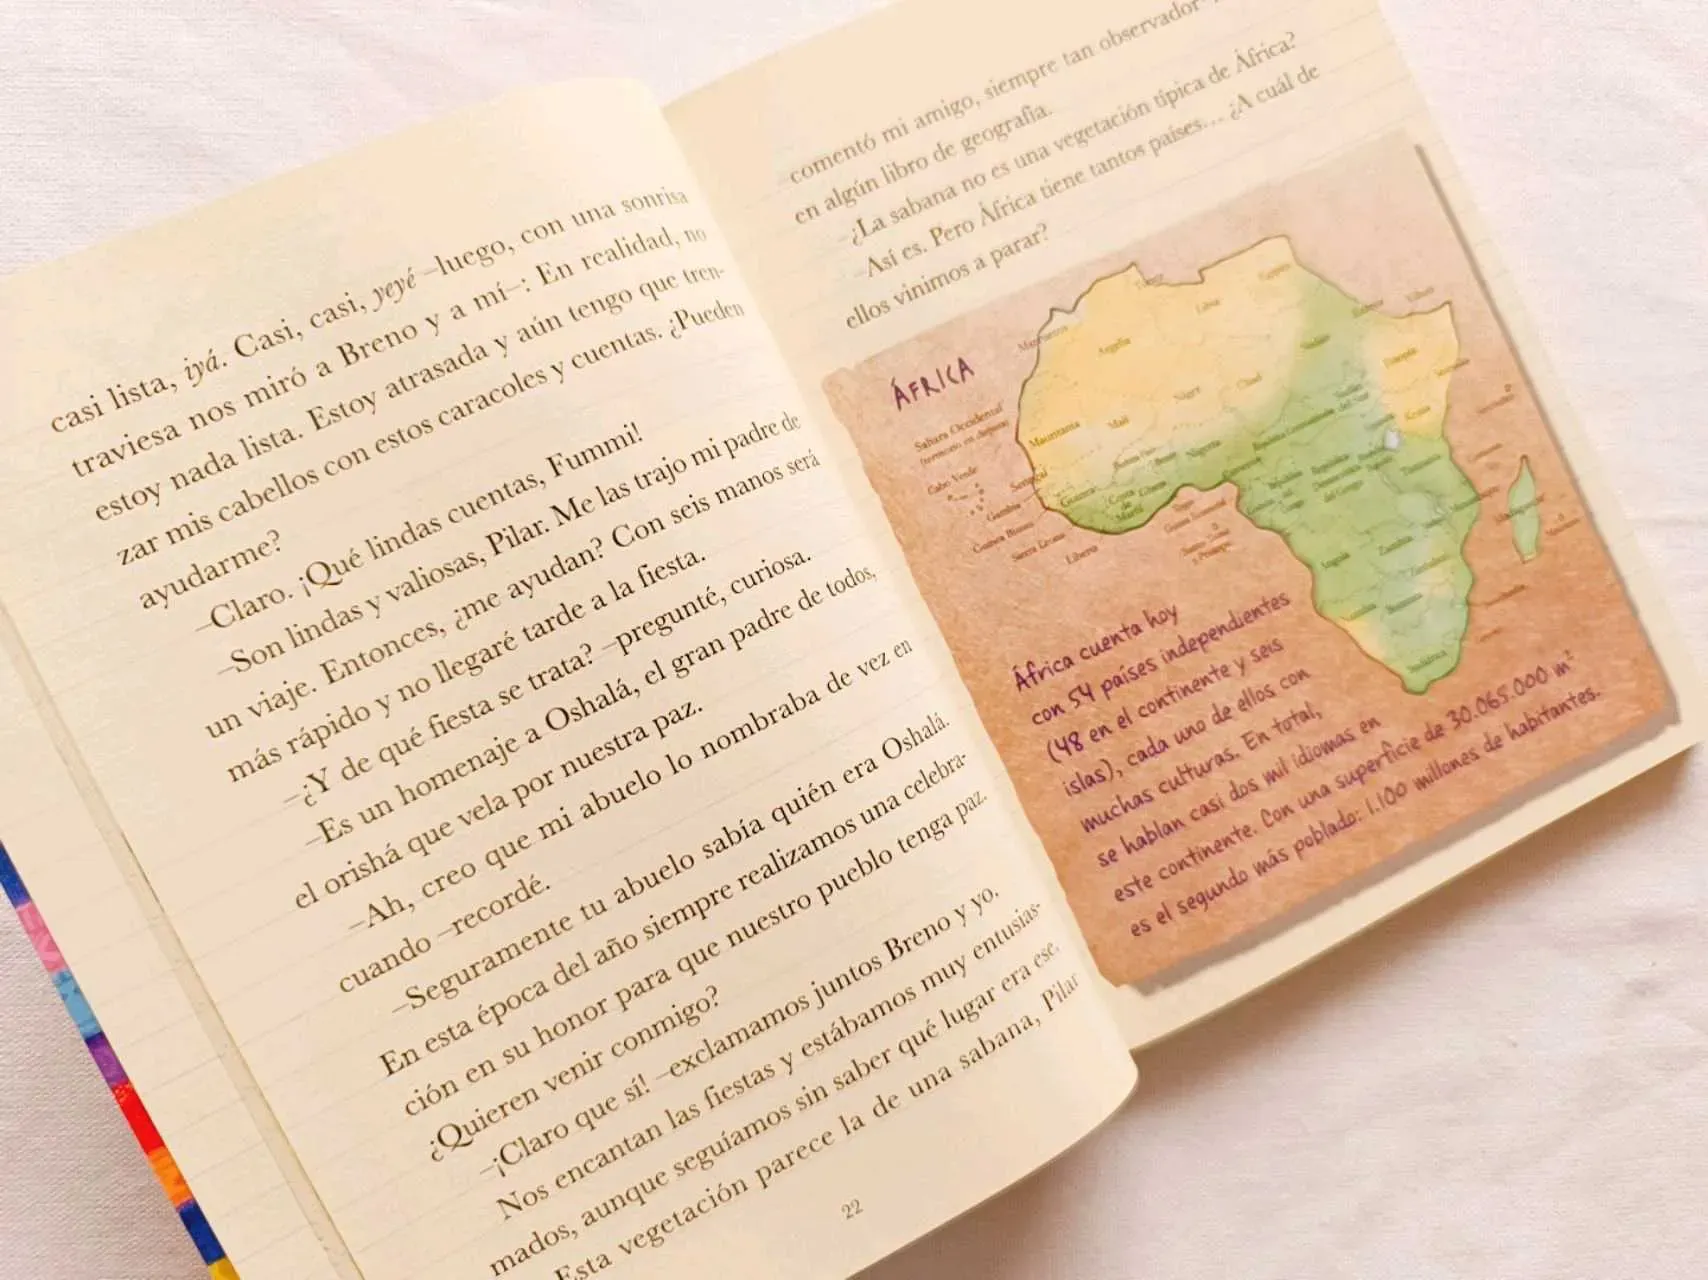 casi lista, iyá. Casi, casi, yeyé –luego, con una sonrisa
traviesa nos miró a Breno y a mí–: En realidad, no
estoy nada lista. Estoy atrasada y aún tengo que tren-
zar mis cabellos con estos caracoles y cuentas. ¿Pueden
ayudarme?
–Claro. ¡Qué lindas cuentas, Fummi!
–Son lindas y valiosas, Pilar. Me las trajo mi padre de
un viaje. Entonces, ¿me ayudan? Con seis manos será
más rápido y no llegaré tarde a la fiesta.
–¿Y de qué fiesta se trata? –pregunté, curiosa.
–Es un homenaje a Oshalá, el gran padre de todos,
el orishá que vela por nuestra paz.
–Ah, creo que mi abuelo lo nombraba de vez en
cuando –recordé.
–Seguramente tu abuelo sabía quién era Oshalá.
En esta época del año siempre realizamos una celebra-
ción en su honor para que nuestro pueblo tenga paz.
¿Quieren venir conmigo?
–¡Claro que sí! –exclamamos juntos Breno y yo.
Nos encantan las fiestas y estábamos muy entusias-
mados, aunque seguíamos sin saber qué lugar era ese.
Esta vegetación parece la de una sabana, Pilar
22
comentó mi amigo, siempre tan observador–
en algún libro de geografía.
–¿La sabana no es una vegetación típica de África?
–Así es. Pero África tiene tantos países... ¿A cuál de
ellos vinimos a parar?
ÁFRICA
Marruecos
Argelia
Libia
Egipto
Sahara Occidental
Cabo Verde
Mauritania
Malí
Níger
Chad
Sudán
Etiopía
Senegal
Gambia
Guinea Bissau
Guinea
Sierra Leona
Liberia
Costa
de
Marfil
Nigeria
Kenia
Tanzania
Angola
Zambia
Zimbabue
Sudáfrica
África cuenta hoy
con 54 países independientes
(48 en el continente y seis
islas), cada uno de ellos con
muchas culturas. En total,
se hablan casi dos mil idiomas en
este continente. Con una superficie de 30.065.000 m²
es el segundo más poblado: 1.100 millones de habitantes.